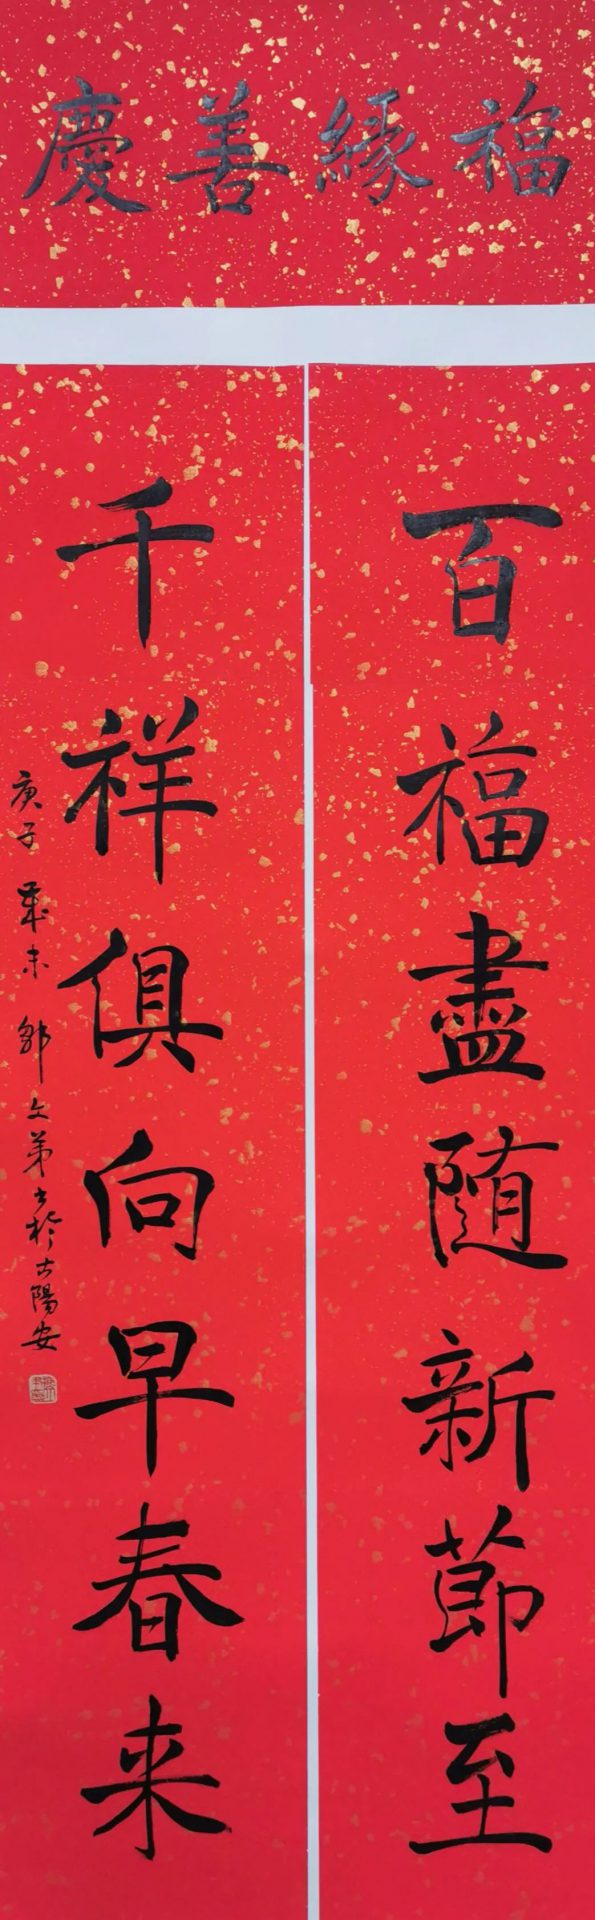 福緣善慶
百福盡随新節至
千祥俱向早春来
庚子歲末鄒文第書於古陽安